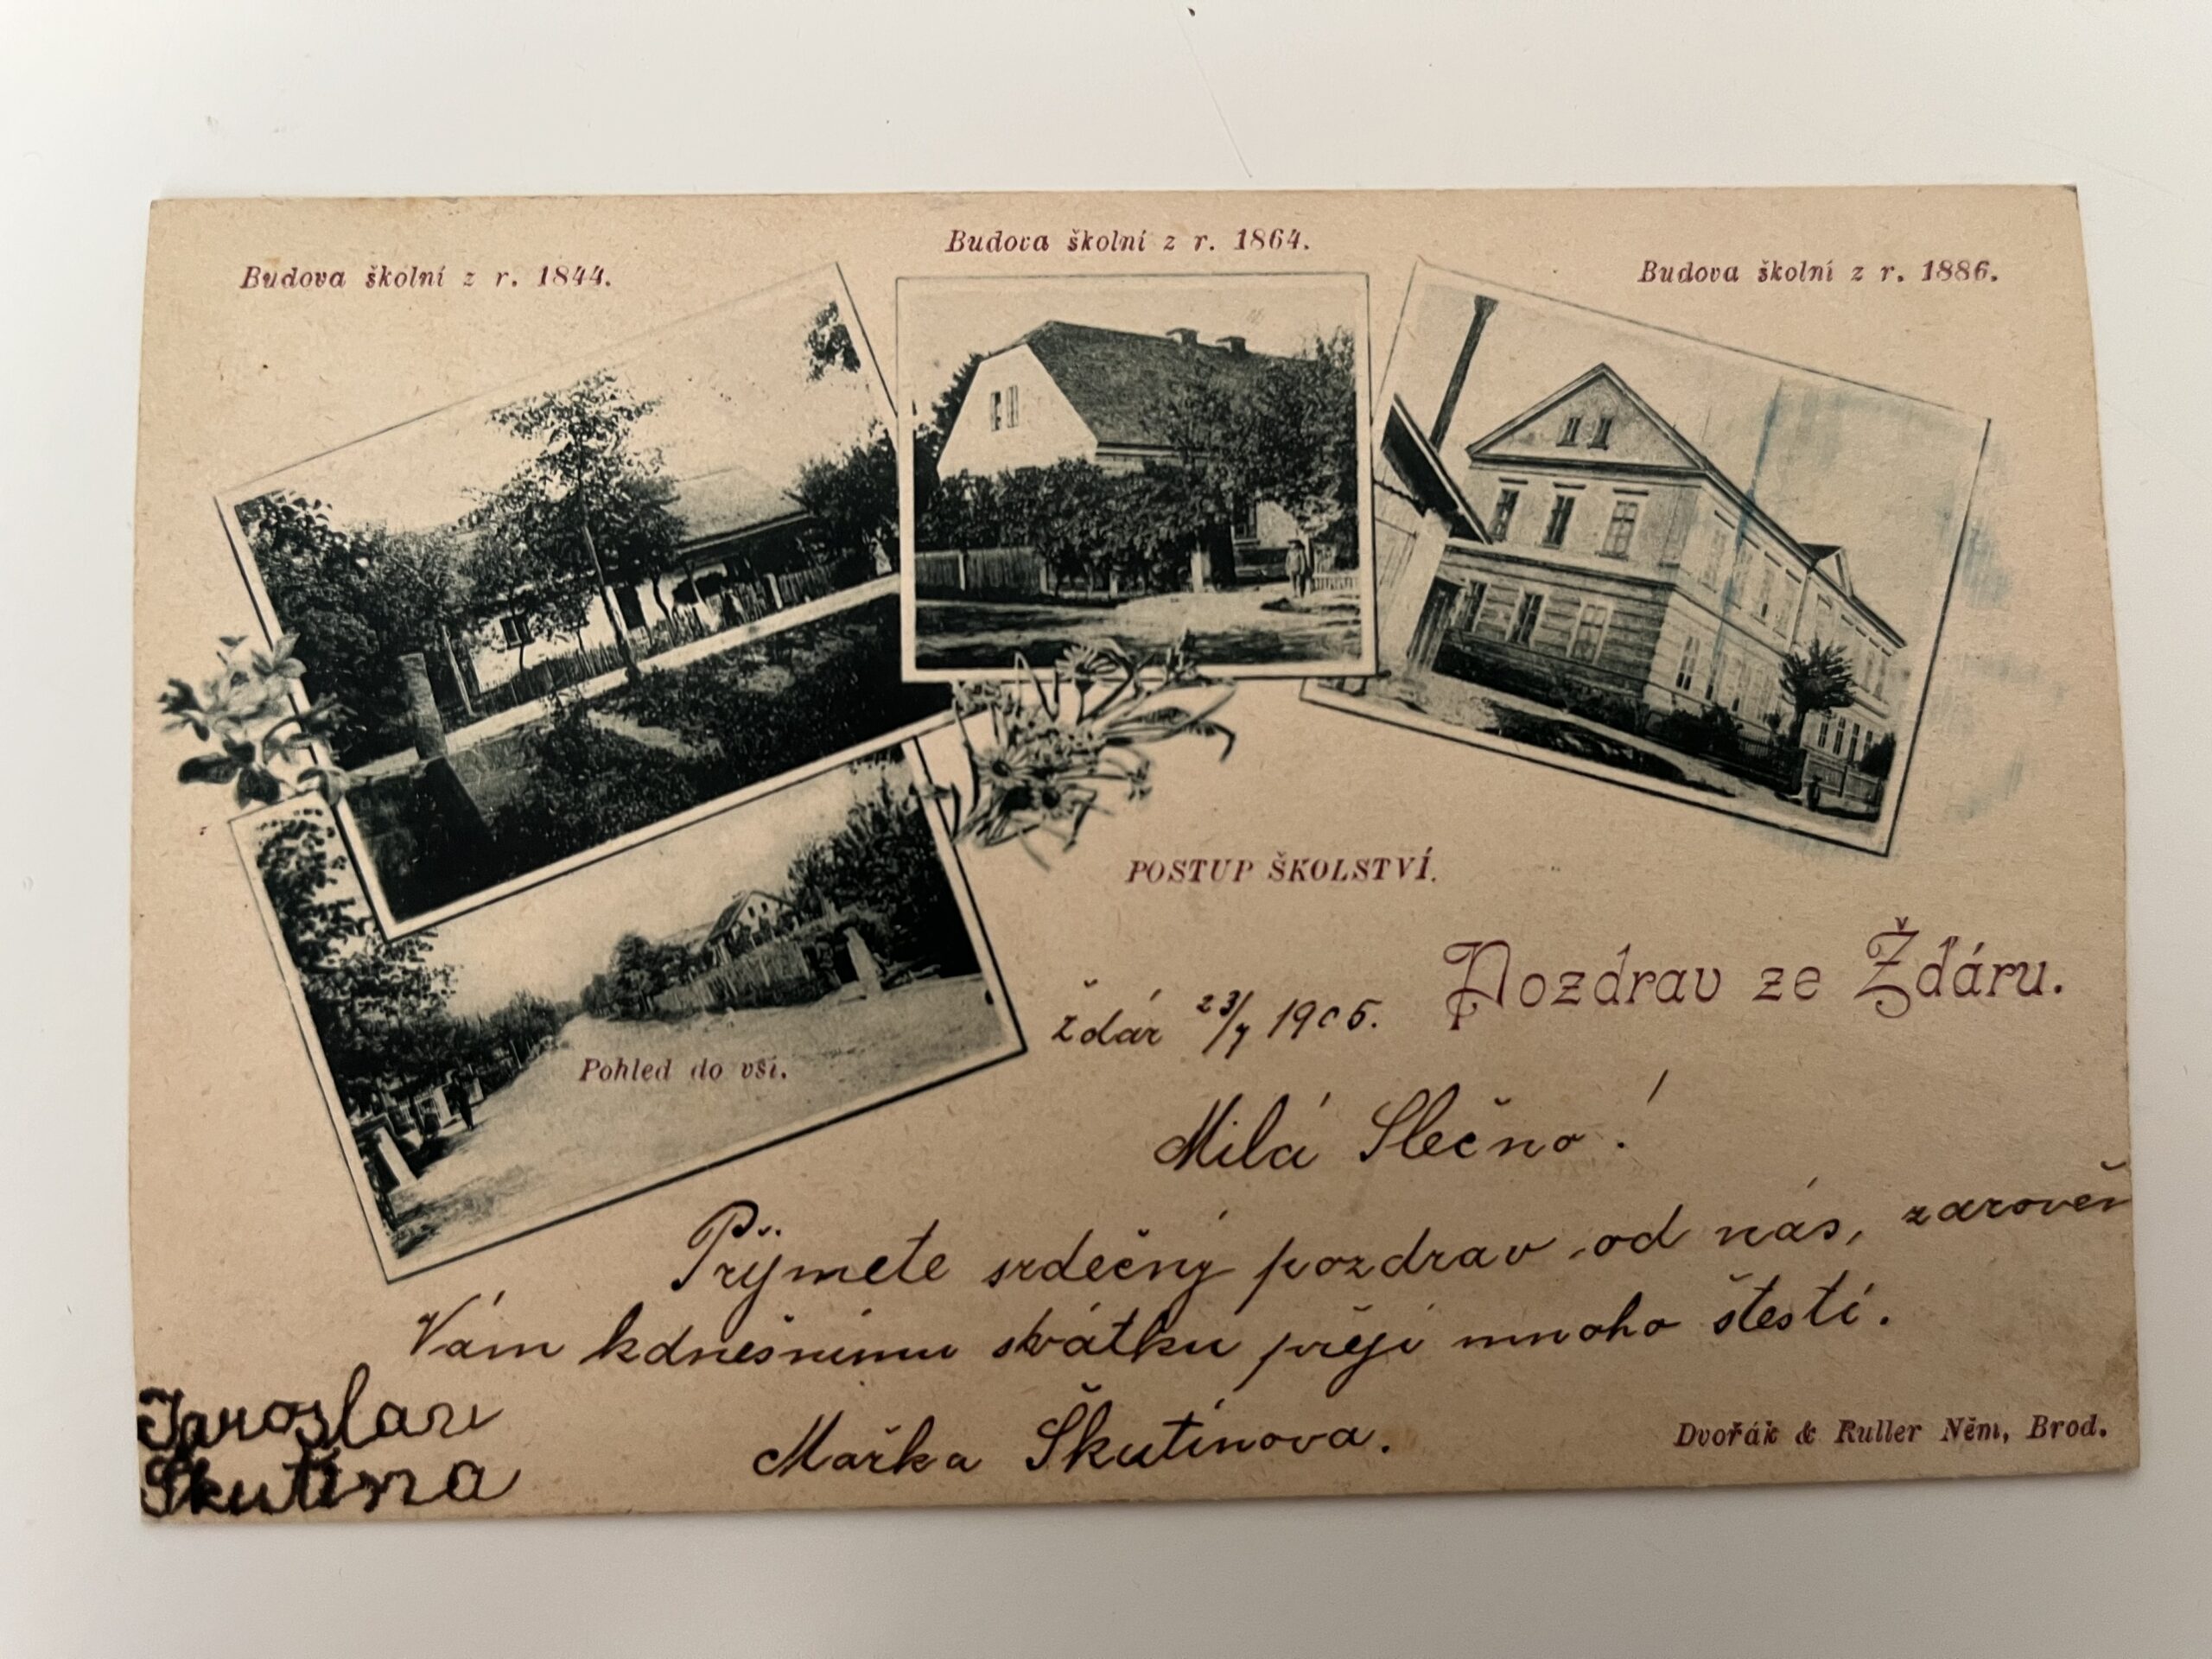 Budova školní z r. 1844.
Budova školní z r. 1864.
Budova školní z r. 1886.
POSTUP ŠKOLSTVÍ.
Pozdrav ze Žďáru.
Pohled do vsi.
Ždár 23/7 1905.
Milá Slečno!
Přijmete srdečný pozdrav od nás, zaroveň
Vám kdnešnímu svátku přeji mnoho štestí.
Mařka Škutinova.
Jaroslav
Skutina
Dvořák & Ruller Něm, Brod.